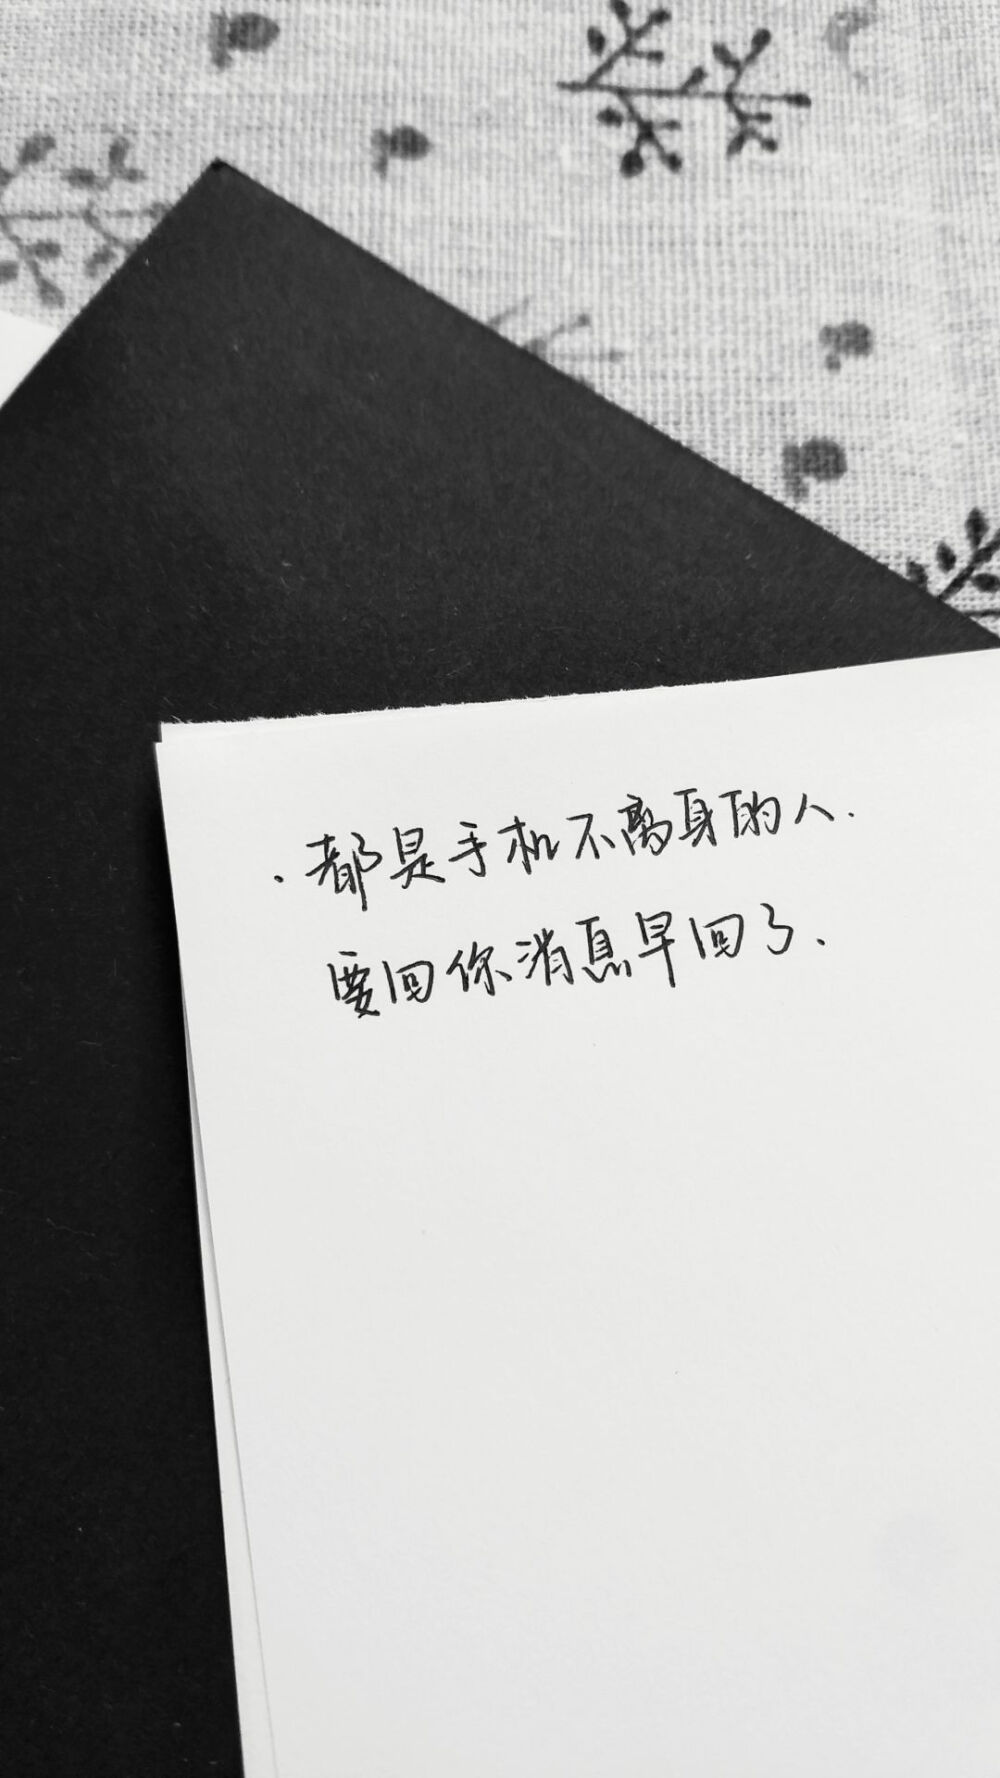 ·都是手机不离身的人.
要回你消息早回了.